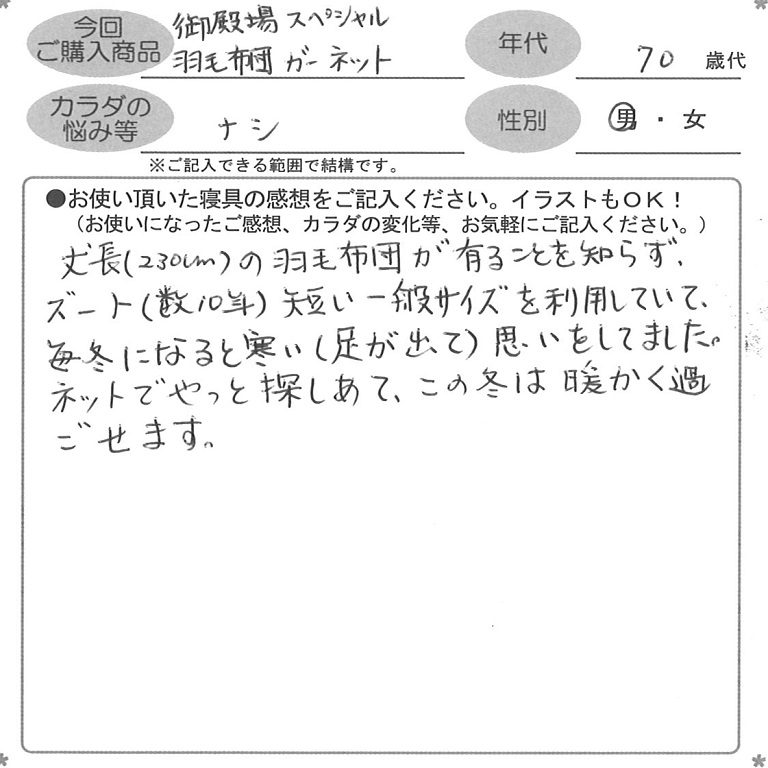 今回
ご購入商品
御殿場スペシャル
羽毛布団 ガーネット
年代
70 歳代
カラダの
悩み等
ナシ
性別
男・女
※ご記入できる範囲で結構です。
●お使い頂いた寝具の感想をご記入ください。イラストもOK！
（お使いになったご感想、カラダの変化等、お気軽にご記入ください。）
丈長(230cm)の羽毛布団が有ることを知らず、
ズート(数10年)短い一般サイズを利用していて、
毎冬になると寒い(足が出て)思いをしてました。
ネットでやっと探しあて、この冬は暖かく過
ごせます。